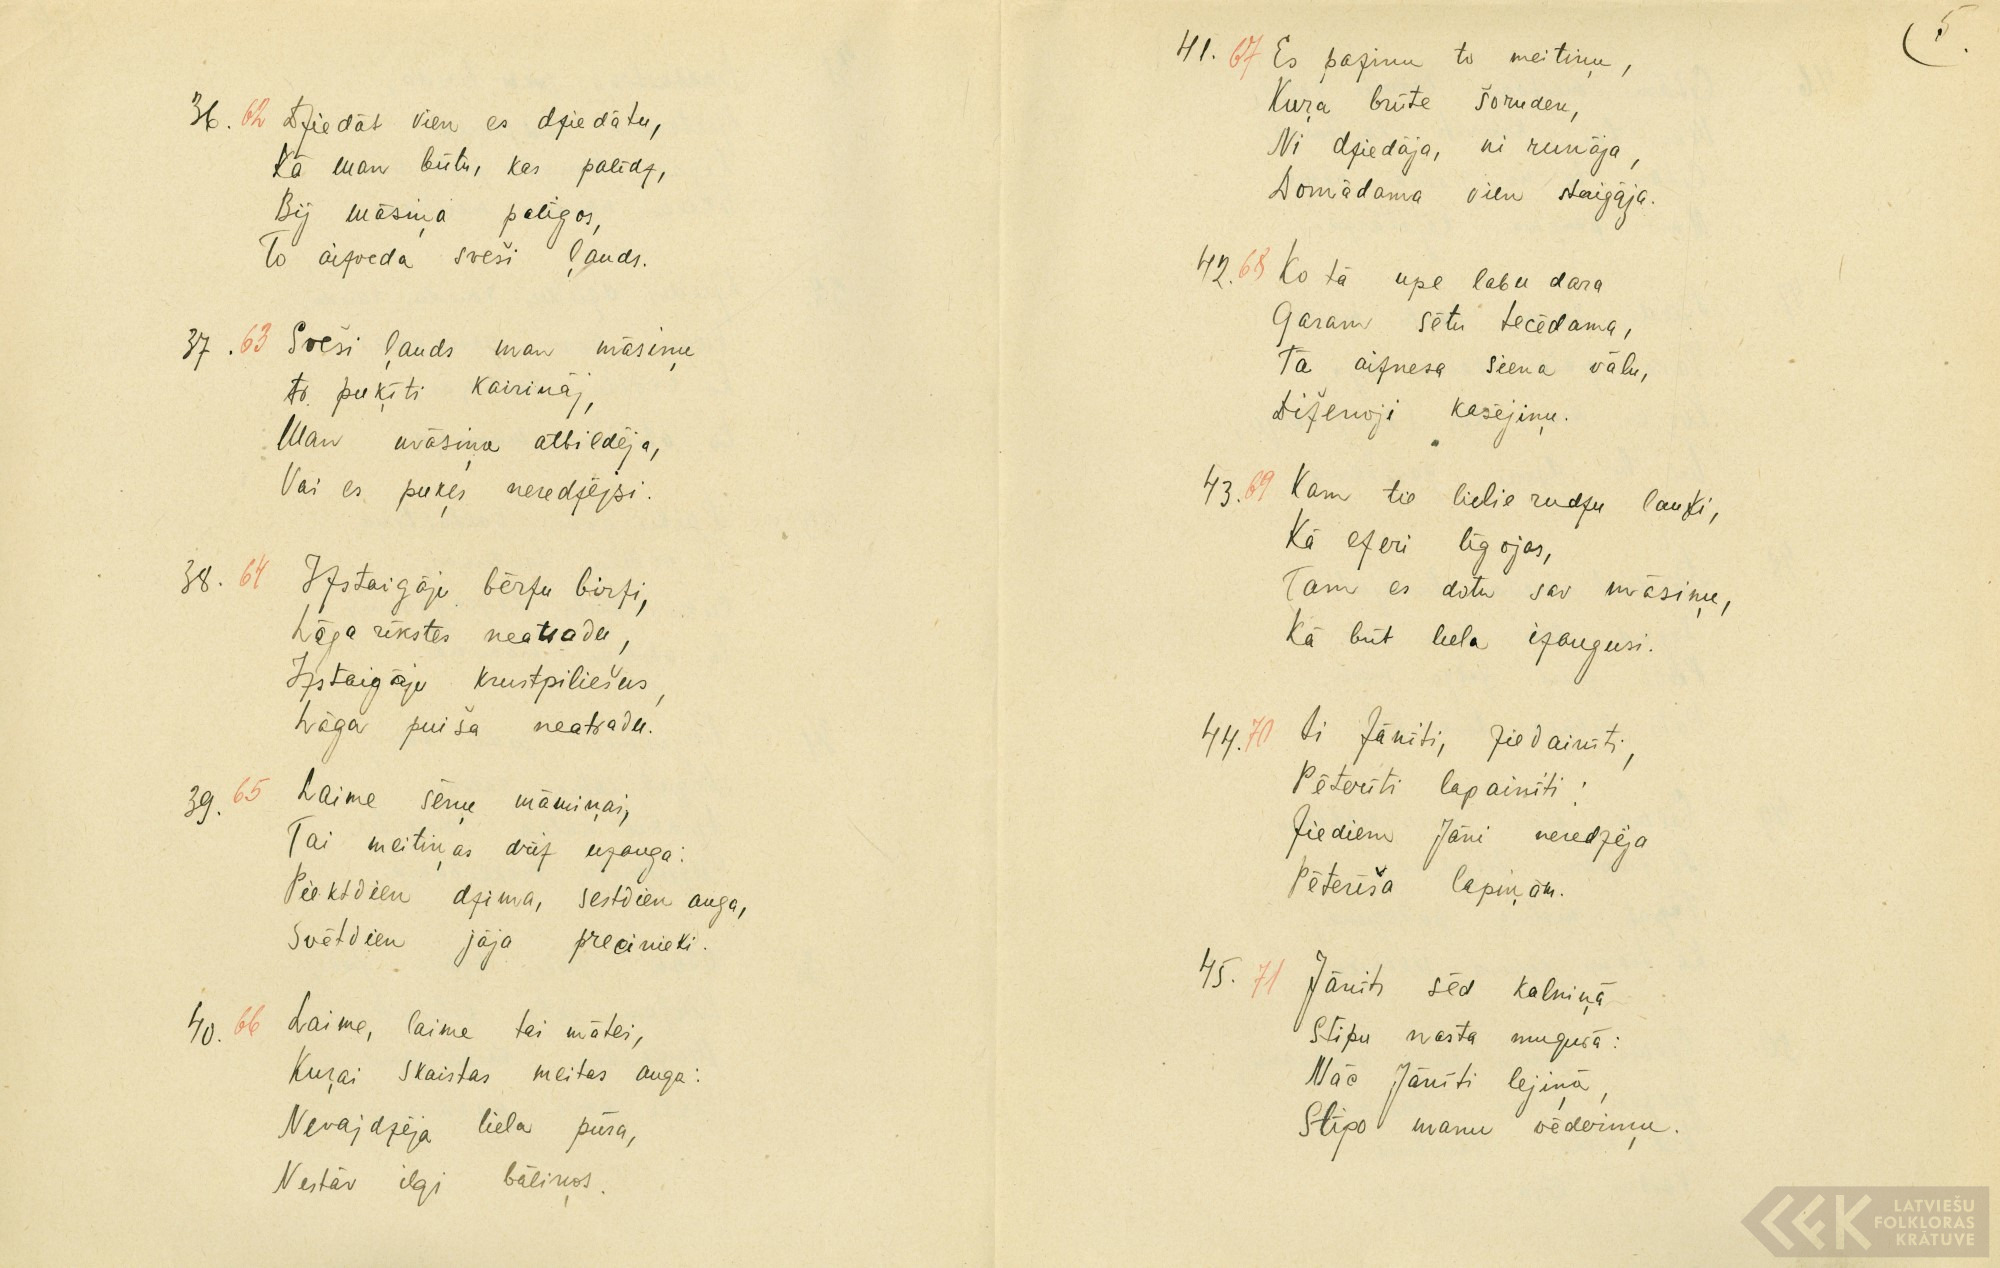 36. 62 Dziedāt vien es dziedātu,
Kā man būtu, kas palīdz,
Bij māsiņa palīgos,
To aizveda sveši ļauds.
37. 63 Sveši ļauds man māsiņu
Ar puķīti kairināj,
Man māsiņa atbildēja,
Vai es puķes neredzējsi.
38. 64 Izstaigāju bērzu birzi,
Lāga rīkstes neatradu,
Izstaigāju krustpiliešus,
Lāga puiša neatradu.
39. 65 Laime sēņu māmiņai,
Tai meitiņas drīz uzauga:
Piektdien dzima, sestdien auga,
Svētdien jāja precinieki.
40. 66 Laime, laime tai mātei,
Kuŗai skaistas meitas auga:
Nevajdzēja liela pūra,
Nestāv ilgi bāliņos.
5.
41. 67 Es pazinu to meitiņu,
Kuŗa brūte šoruden,
Ni dziedāja, ni runāja,
Domādama vien staigāja.
42. 68 Ko tā upe labu dara
Garam sētu tecēdama,
Tā aiznesa siena vālu,
Diženoji kasējiņu.
43. 69 Kam tie lielie rudzu lauki,
Kā ezeri līgojas,
Tam es dotu sav māsiņu,
Kā būt liela izaugusi.
44. 70 Ai Jānīti, ziedainīti,
Pēterīti lapainīti!
Ziediem Jāni neredzēja
Pēterīša lapiņām.
45. 71 Jānīts sēd kalniņā
Stīpu nasta mugurā:
Nāc Jānīti lejiņā,
Stīpo manu vēderiņu.
LATVIEŠU
FOLKLORAS
KRĀTUVE